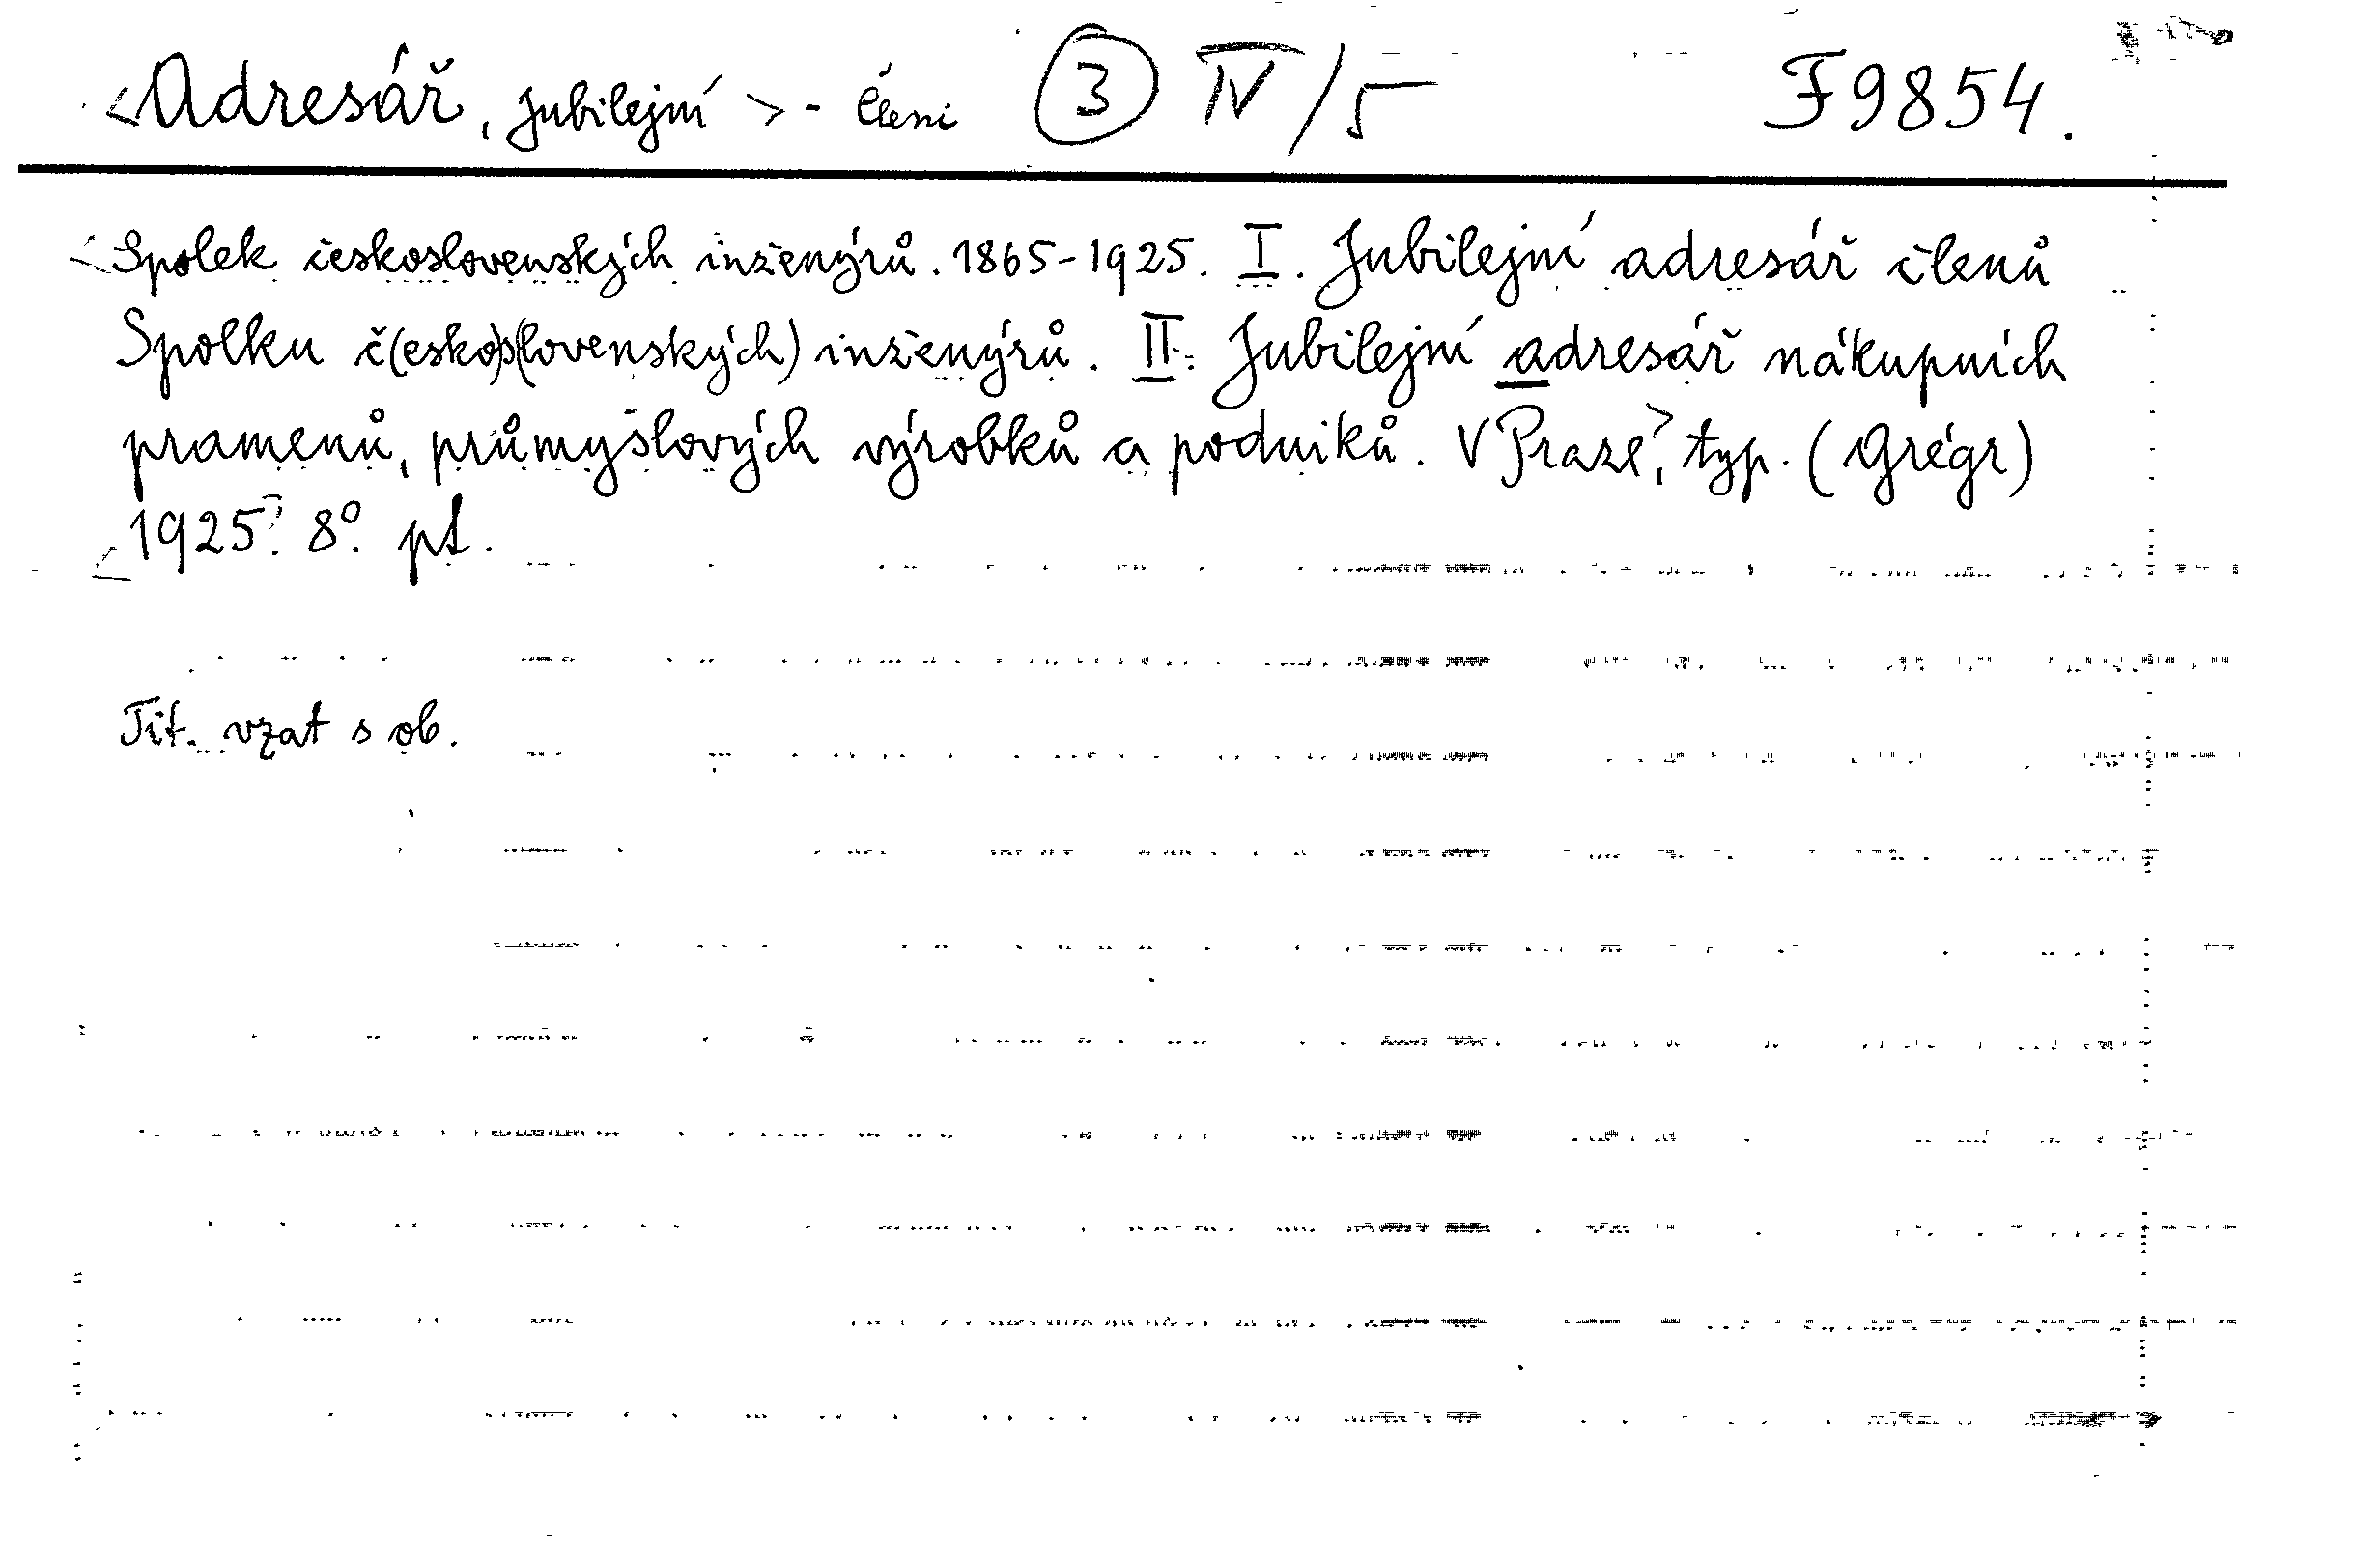 <Adresář, jubilejní> - členi 3 IV/5 F9854.
<Spolek československých inženýrů. 1865-1925. I. Jubilejní adresář členů
Spolku č(esko)s(lovenských) inženýrů. II. Jubilejní adresář nákupních
pramenů, průmyslových výrobků a podniků. V Praze>, typ. (Grégr)
<1925>. 8°. pt.
Tit. vzat s ob.